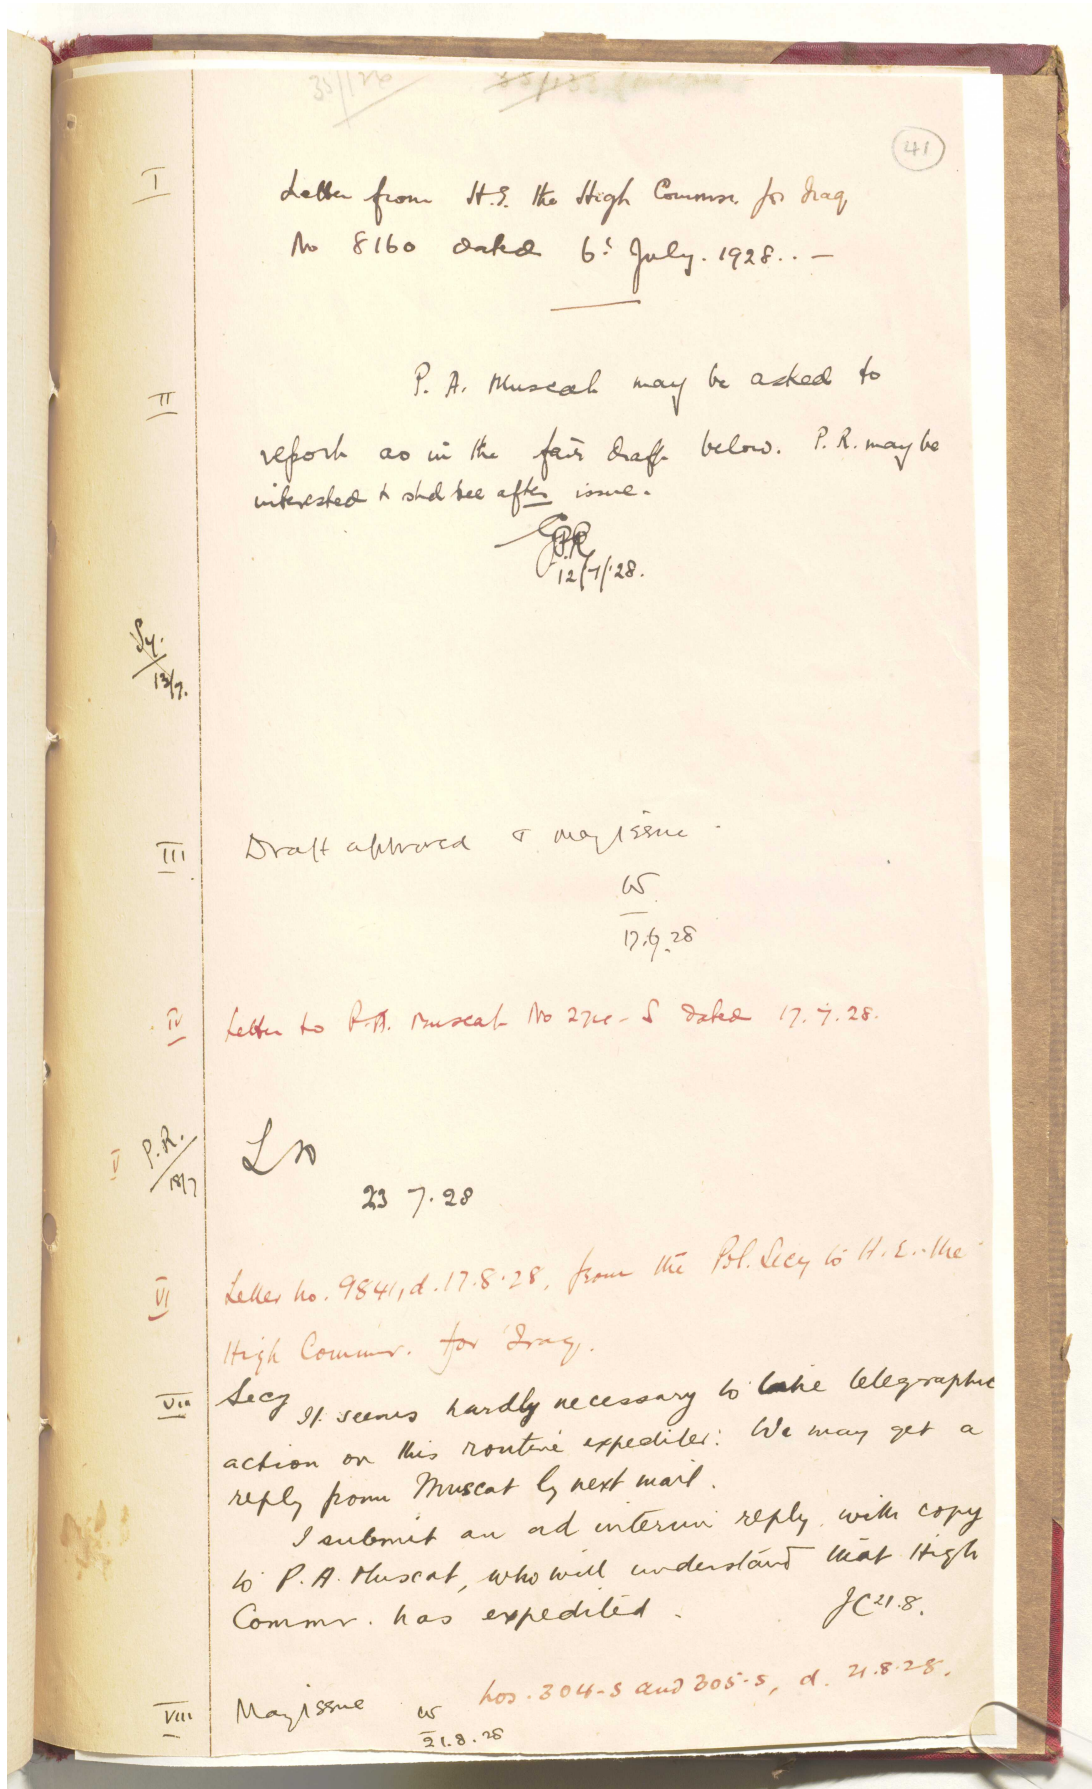 35/126
41
I
Letter from H.E. the High Commr. for Iraq
No 8160 dated 6t July. 1928.. —
II
P. A. Muscat may be asked to
report as in the fair draft below. P. R. may be
interested & shd see after issue.
12/7/28.
Sy.
13/7.
III
Draft approved & may issue.
17.7.28
IV
Letter to P.A. Muscat No dated 17.7.28.
V
P.R.
18/7
23 7.28
VI
Letter no. 9841, d. 17.8.28, from the Pol. Secy to H.E. the
High Commr. for 'Iraq.
VII
Secy It seems hardly necessary to take telegraphic
action on this routine expediter: We may get a
reply from Muscat by next mail.
I submit an ad interim reply with copy
to P.A. Muscat, who will understand that High
Commr. has expedited.
JC 21.8.
nos. 304-S and 305-S, d. 21.8.28.
VIII
May issue
21.8.28